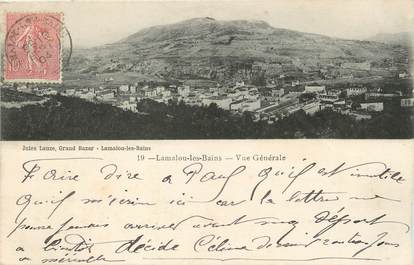 Jules Lauze, Grand Bazar - Lamalou-les-Bains
19 - Lamalou-les-Bains - Vue Générale
Faire dire a Paul qu'il est inutile
qu'il m'écrive ici car la lettre ne
pourra jamais arriver avant mon départ
a bientôt décide Célina
a